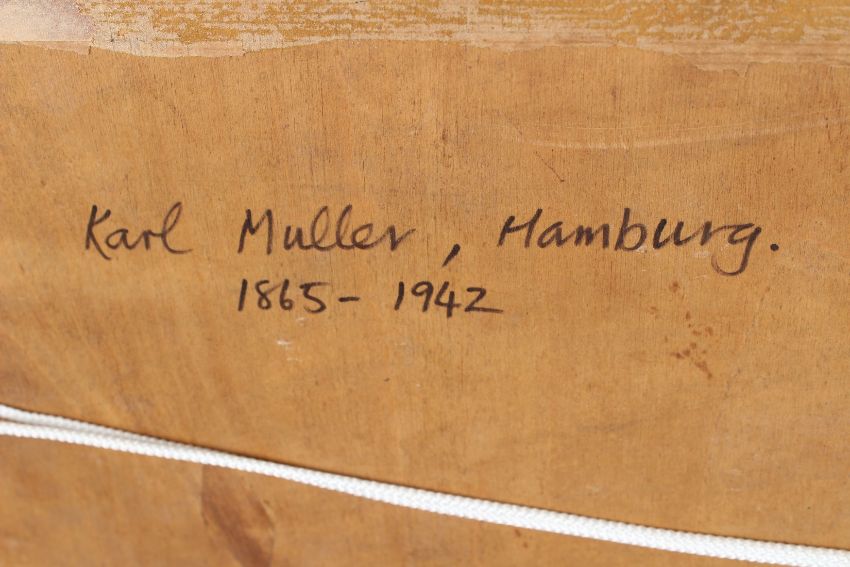 Karl Muller, Hamburg.
1865 - 1942